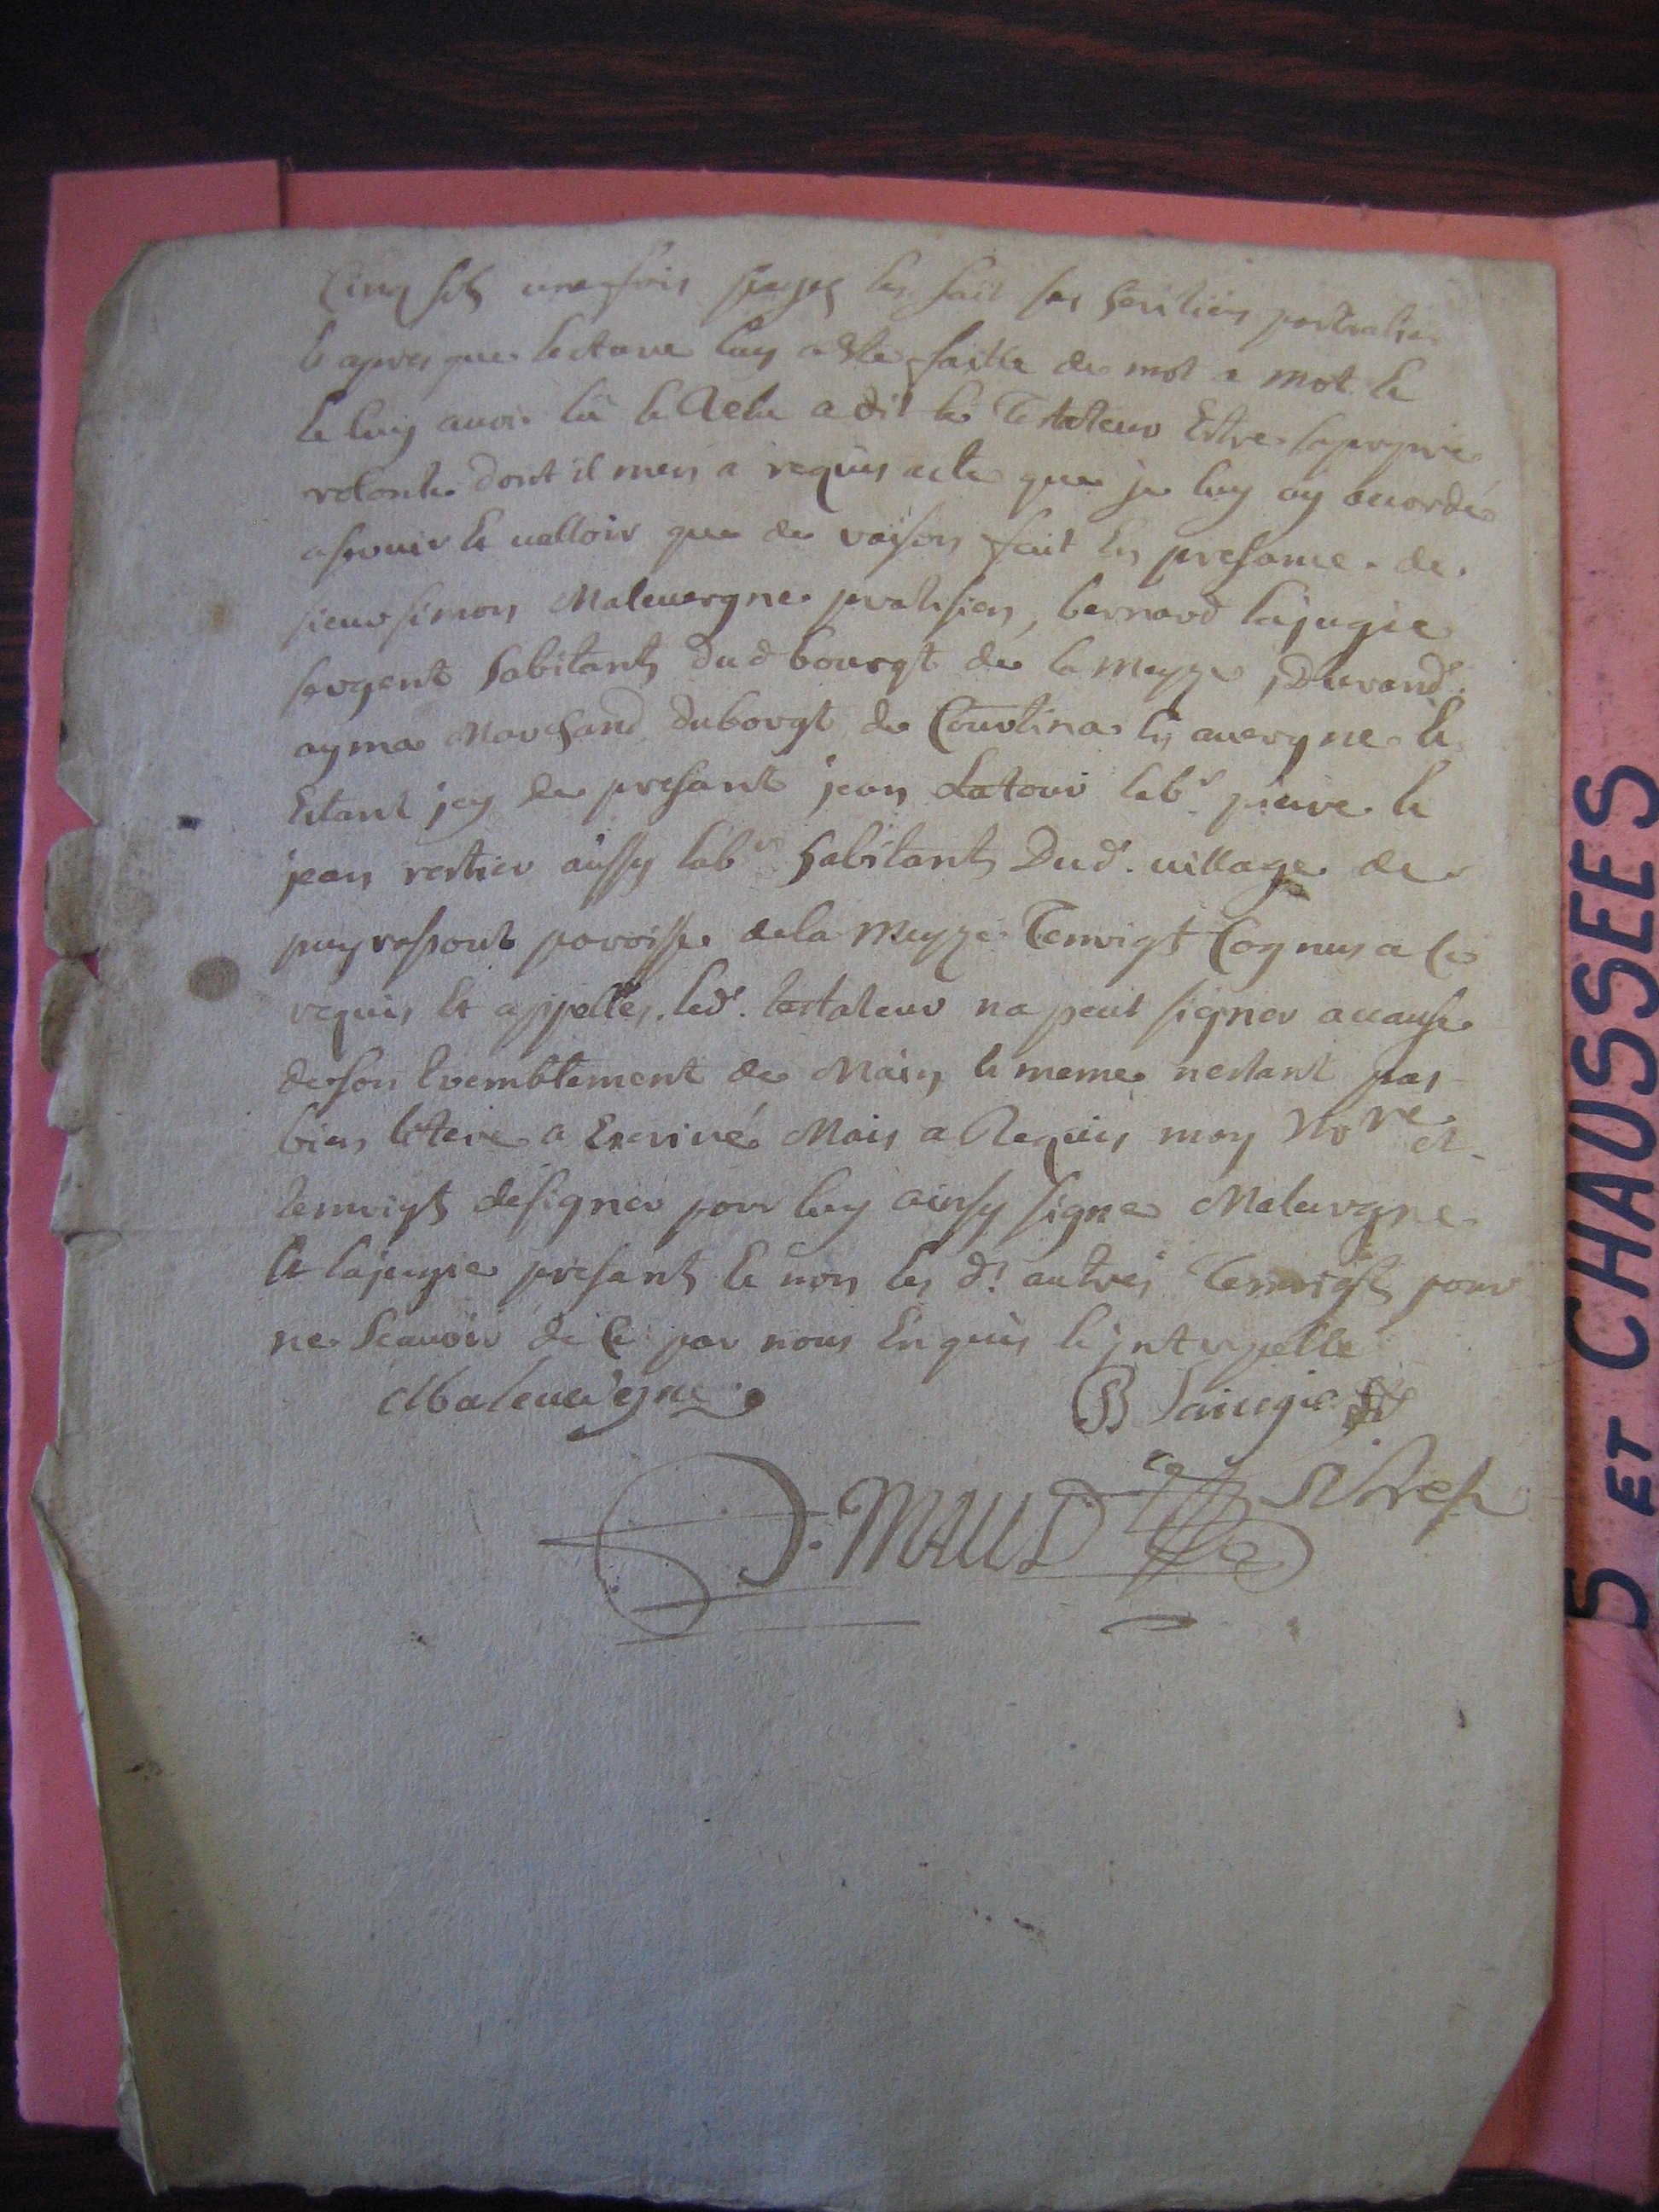 Cinq sols une fois payez les fait ses heritiers
Et apres que lecture luy a este faitte de mot a mot Et
Et luy avoir lû Et Relu a dit le Testateur Estre sa propre
volonte dont il men a requis acte que je luy ay accordé
a servir Et valloir que de raison fait En presance. de.
sieur simon Malevergne pratisien, bernard lajugie
sergent habitants dud bourgt de la meyze, Durand
ayma Marchand du borgt de Courtina En auvergne Et
Estant jcy de presant jean Latour labr. pierre Et
jean restier aussy labr habitants Dud. village de
puyrassout paroisse de la meyze Temoigt Cognus a Ce
requis Et appellés. led. testateur na peut signer accause
de son tremblement de Main Et meme nestant pas
bien lettere a Escriré Mais a Requis moy Nore et
temoigts de signer pour luy ainsy signe Malevergne
Et lajugie presants Et non les d. autres Temoigts pour
ne scavoir de Ce par nous Enquis Et jnterpelle
Malevergne
B Laiugie
J. MAUD Nre
5 ET CHAUSSEES